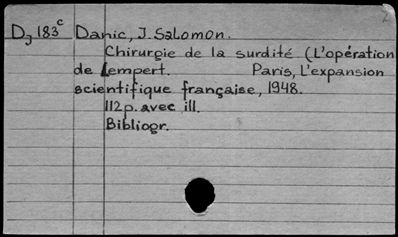 Dj 183c Danic, J. Salomon.
Chirurgie de la surdité (L'opération
de Lempert. Paris, L'expansion
scientifique française, 1948.
112 p. avec ill.
Bibliogr.